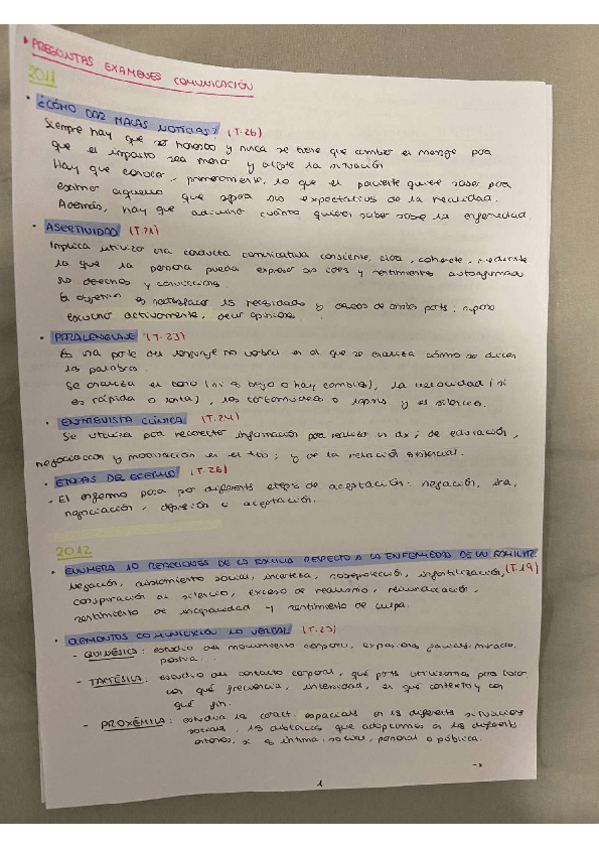 PREGUNTAS EXAMENES COMUNICACIÓN
2011
• ¿CÓMO DAR MALAS NOTICIAS? (T.26)
Siempre hay que ser honesto y nunca se tiene que cambiar el mensaje para
que el impacto sea menor y acepte la situación
Hay que conocer, primeramente, lo que el paciente quiere saber para
estimar aquello que separa sus expectativas de la realidad.
Además, hay que adivinar cuánto quiere saber sobre la enfermedad.
• ASERTIVIDAD (T.21)
Implica utilizar una conducta comunicativa consciente, clara, coherente, mediante
la que la persona pueda expresar sus ideas y sentimientos autoafirmando
sus derechos y convicciones.
El objetivo es satisfacer las necesidades y deseos de ambas partes:
escuchar activamente, pedir opiniones.
• PARALENGUAJE (T.23)
Es una parte del lenguaje no verbal en el que se analiza cómo se dicen
las palabras.
Se analiza el tono (si es bajo o hay cambios), la velocidad (si
es rápida o lenta), y el silencio.
• ENTREVISTA CLÍNICA (T.24)
Se utiliza para recolectar información para realizar un dx; de educación,
negociación y motivación en el tto; y de la relación asistencial.
• ETAPAS DEL ENFERMO (T.26)
- El enfermo pasa por diferentes etapas de aceptación: negación, ira,
negociación, depresión o aceptación.
2012
• ENUMERA 10 REACCIONES DE LA FAMILIA RESPECTO A LA ENFERMEDAD DE UN FAMILIAR
Negación, aislamiento social, incerteza, sobreprotección, infantilización, (T.19)
conspiración del silencio, exceso de realismo, reivindicación,
sentimiento de incapacidad y sentimiento de culpa.
• ELEMENTOS COMUNICACIÓN NO VERBAL (T.23)
- QUINÉSICA: estudio del movimiento corporal, expresiones faciales, mirada,
postura...
- TACTÉSICA: estudio del contacto corporal, qué parts utilizamos para tocar,
con qué frecuencia, intensidad, en qué contexto y con
qué fin.
- PROXÉMICA: estudia las caract. espaciales en las diferents situaciones
sociales, las distancias que adoptamos en los diferents
entornos, si es íntima, social, personal o pública.
1